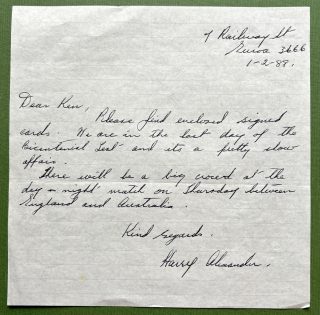 7 Railway St
Euroa 3666
1-2-88.
Dear Ken,
Please find enclosed signed
cards. We are in the last day of the
Bicentenial Test and its a pretty slow
affair.
There will be a big crowd at the
day n night match on Thursday between
England and Australia.
Kind regards.
Harry Alexander.